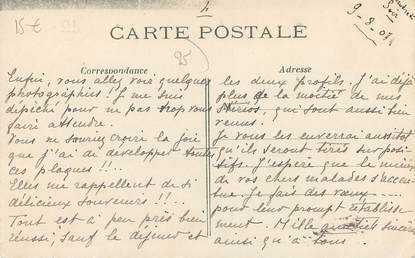 15€
95
4
Soir
9-8-08
CARTE POSTALE
95
Correspondance
Adresse
Enfin, vous allez voir quelques
photographies! Je me suis
dépêché pour ne pas trop vous
faire attendre.
Vous ne sauriez croire la joie
que j'ai de développer toutes
ces plaques!!...
Elles me rappellent de si
délicieux souvenirs!!!
Tout est à peu près bien
réussi; sauf le déjeuner et
les deux profils. J'ai déjà
plus de la moitié de mes
stéréos, qui sont aussi bien
venues.
Je vous les enverrai aussitôt
qu'ils seront tirés sur posi-
tifs. J'espère que le mieux
de vos chers malades s'accen-
tue. Je fais des vœux
pour leur prompt rétablisse-
ment. Mille amitiés sincères
ainsi qu'à tous.